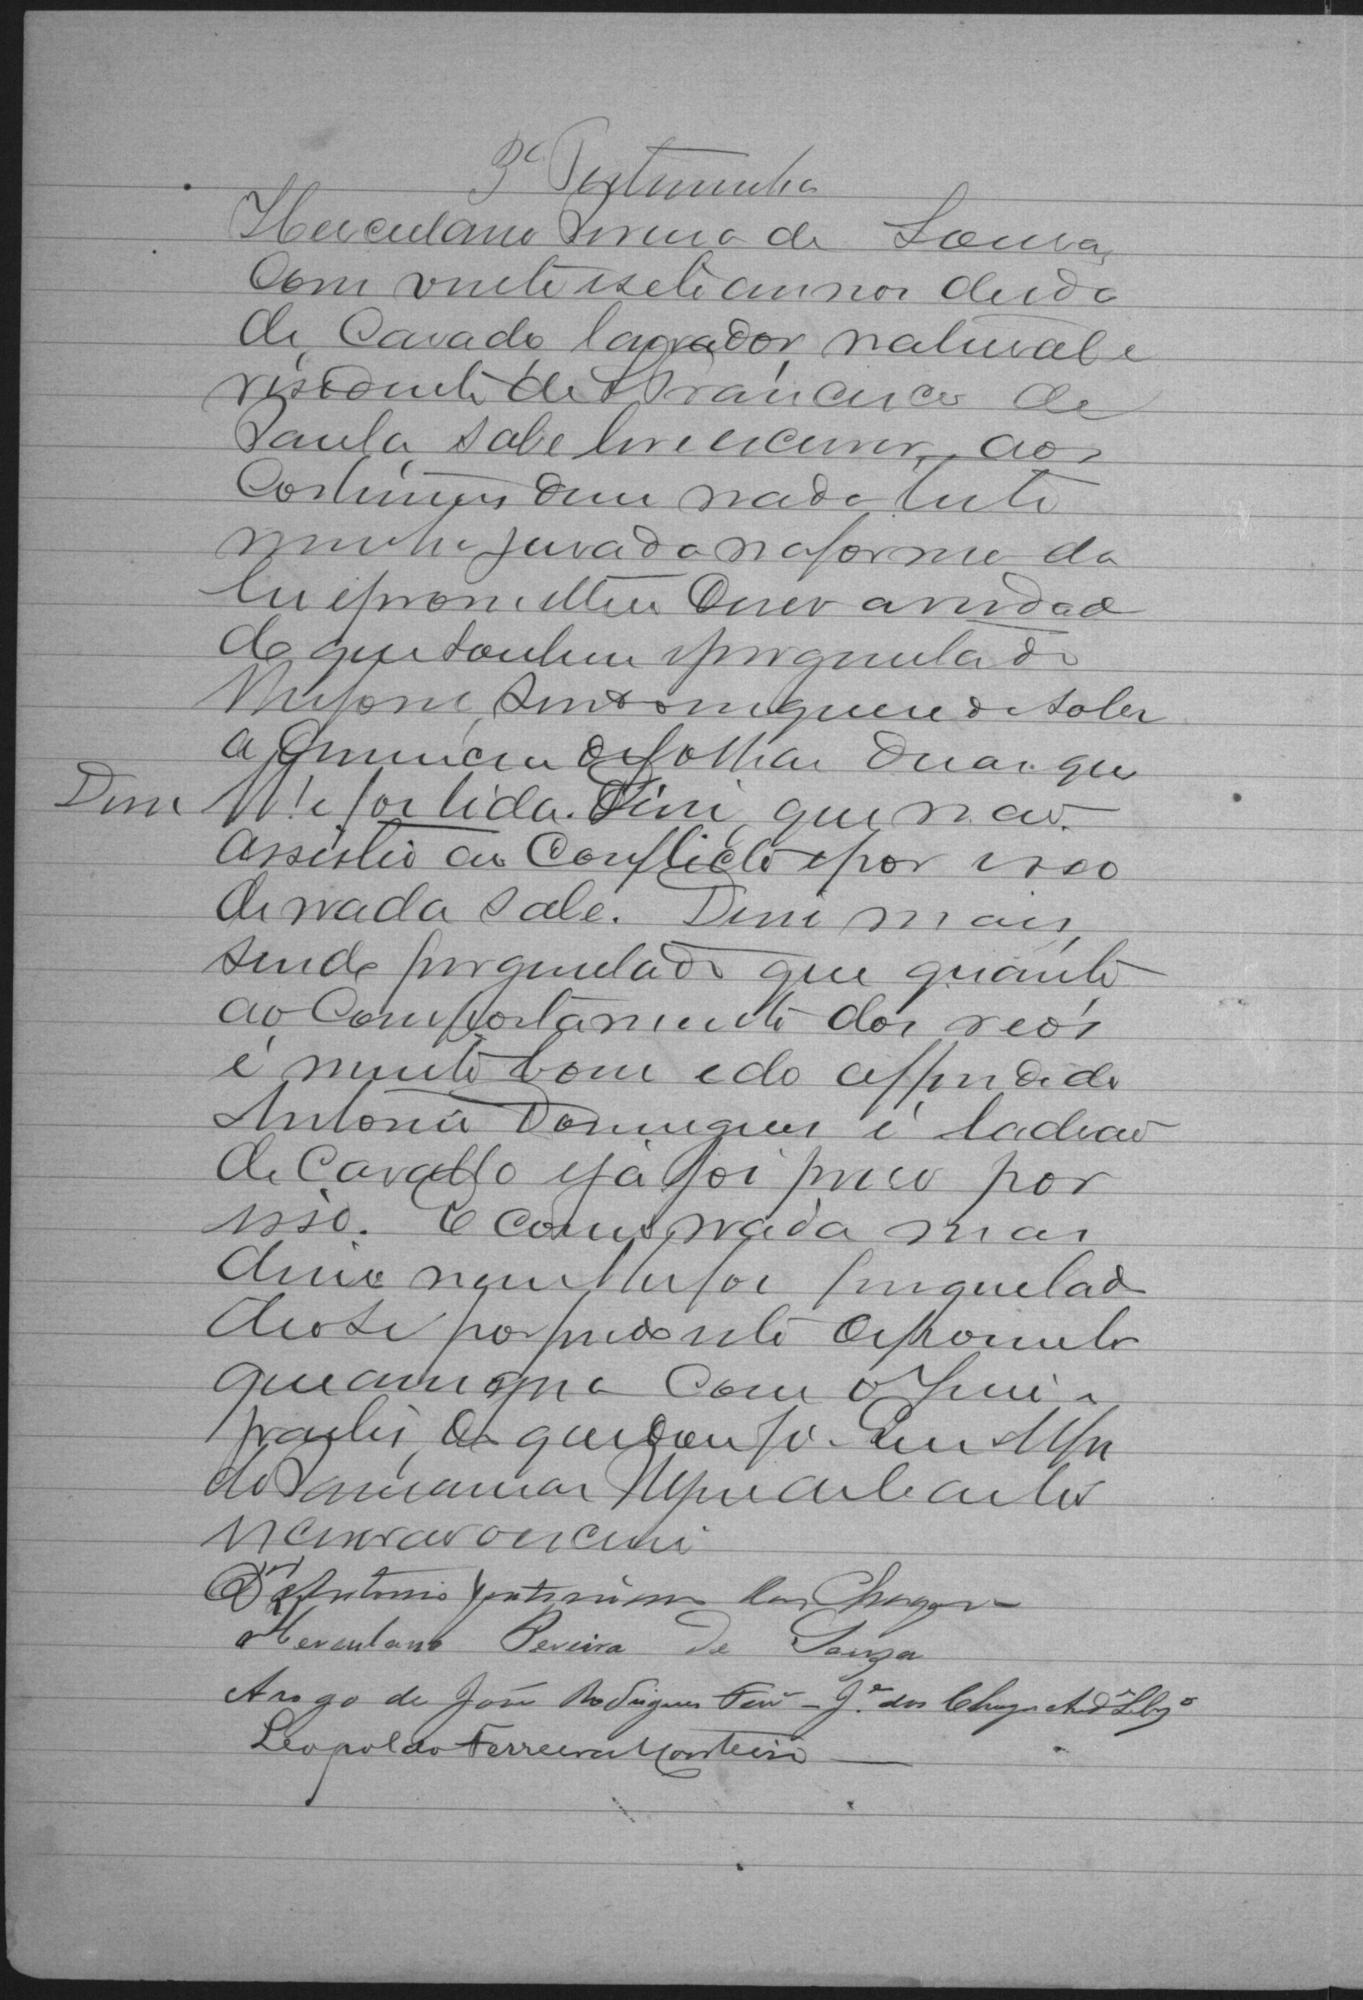 3ª Testemunha
Herculano Pereira de Souza,
com vinte e sete annos de ida
de, Casado, lavrador, natural e
residente de S Francisco de
Paula, sabe ler e escrever, aos
Costumes disse nada teste
munha jurada na forma da
lei e prometteu diser a verdade
do que soubesse e perguntado
lhe fosse, sendo inquirido sobre
a denuncia de folhas duas que
Disse lhe foi lida. Disse, que não
assistio ao Conflicto e por isso
de nada sabe. Disse mais,
sendo perguntado que quanto
ao Comportamento dos reos
é muito bom e do offendido
Antonio Domingues é ladrão
de Cavallo e já foi preso por
isso. E como nada mais
disse nem lhe foi perguntado
deo se por findo este depoimento
que assigna com o Juiz e
partes do que dou fé. Eu
escrivão o escrevi
Antonio das Chagas
Herculano Pereira de Souza
Arogo de José Rodrigues
Leopoldo Ferreira Monteiro